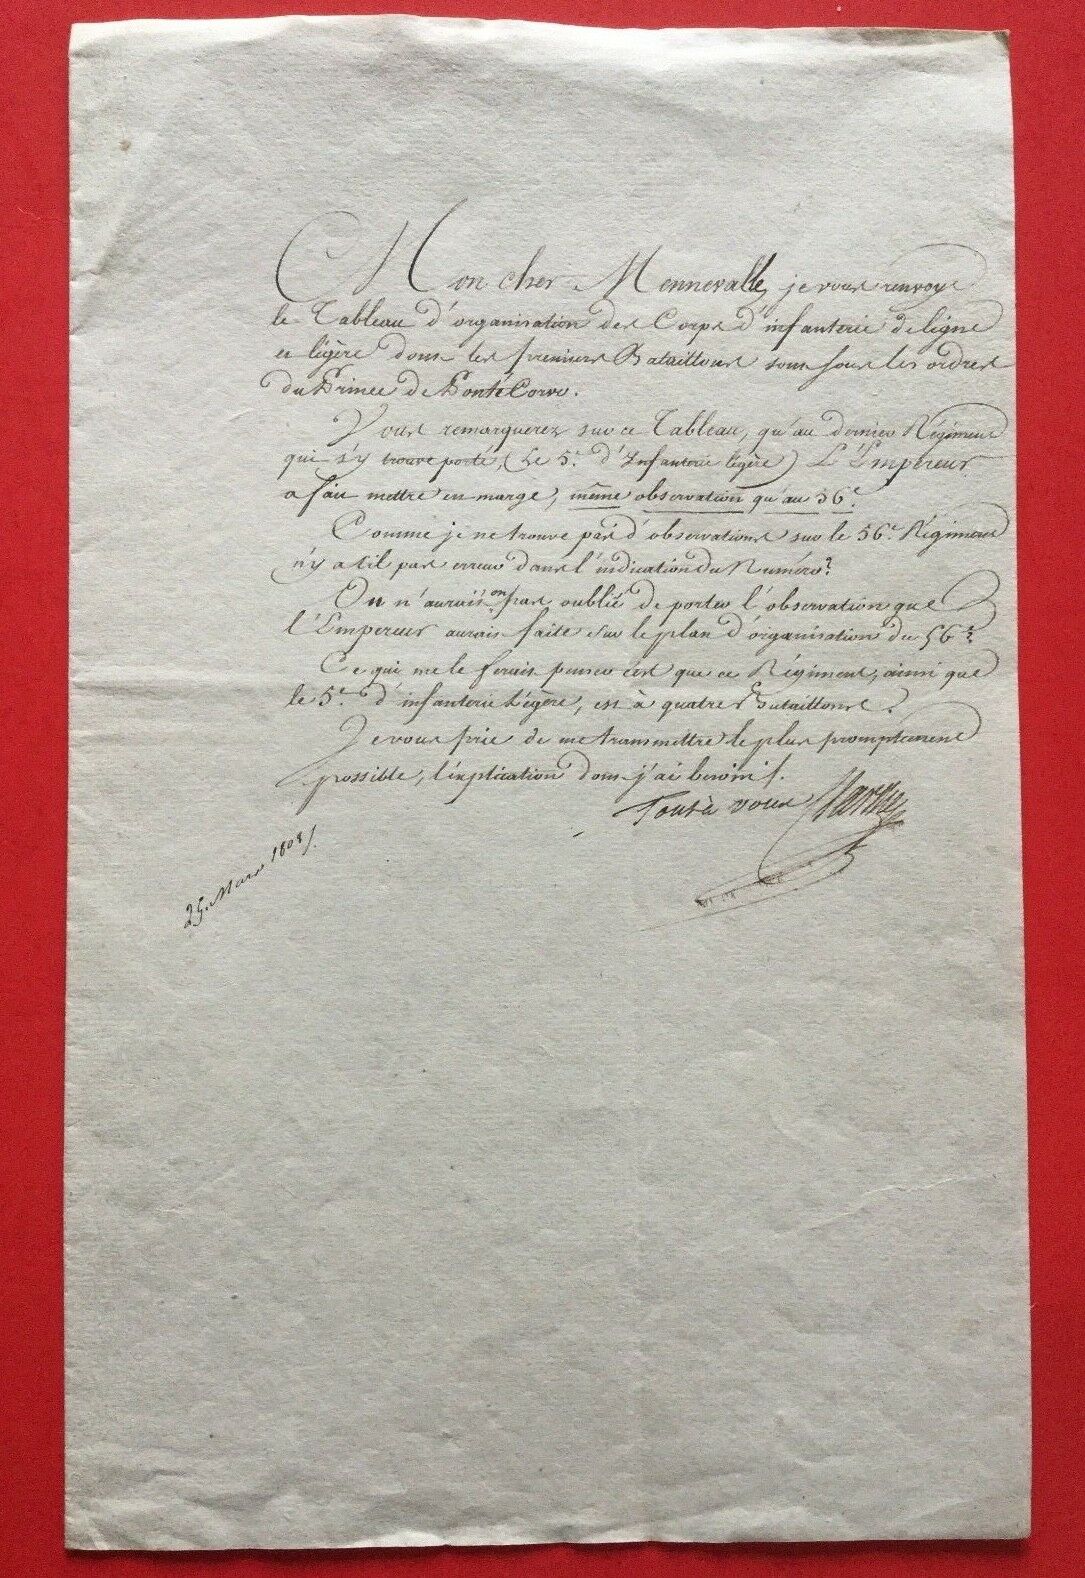 Mon cher Mennevalle, je vous renvoye
le Tableau d'organisation des Corps d'infanterie de ligne
et légère dont les premiers Bataillons sont sous les ordres
du Prince de Ponté Corvo.
Vous remarquerez sur ce Tableau, qu'au dernier Régiment
qui s'y trouve porté, (Le 5.e d'Infanterie légère) L'Empereur
a fait mettre en marge, même observation qu'au 56.e
Comme je ne trouve pas d'observations sur le 56.e Régiment
n'y a til pas erreur dans l'indication du Numéro?
On n'aurait on pas oublié de porter l'observation que
l'Empereur aurait faite sur le plan d'organisation du 56.e?
Ce qui me le ferait penser c'est que ce Régiment, ainsi que
le 5.e d'infanterie Légère, est à quatre Bataillons?
Je vous prie de me transmettre le plus promptement
possible, l'explication dont j'ai besoin /.
Tout à vous
25. Mars 1808 /.